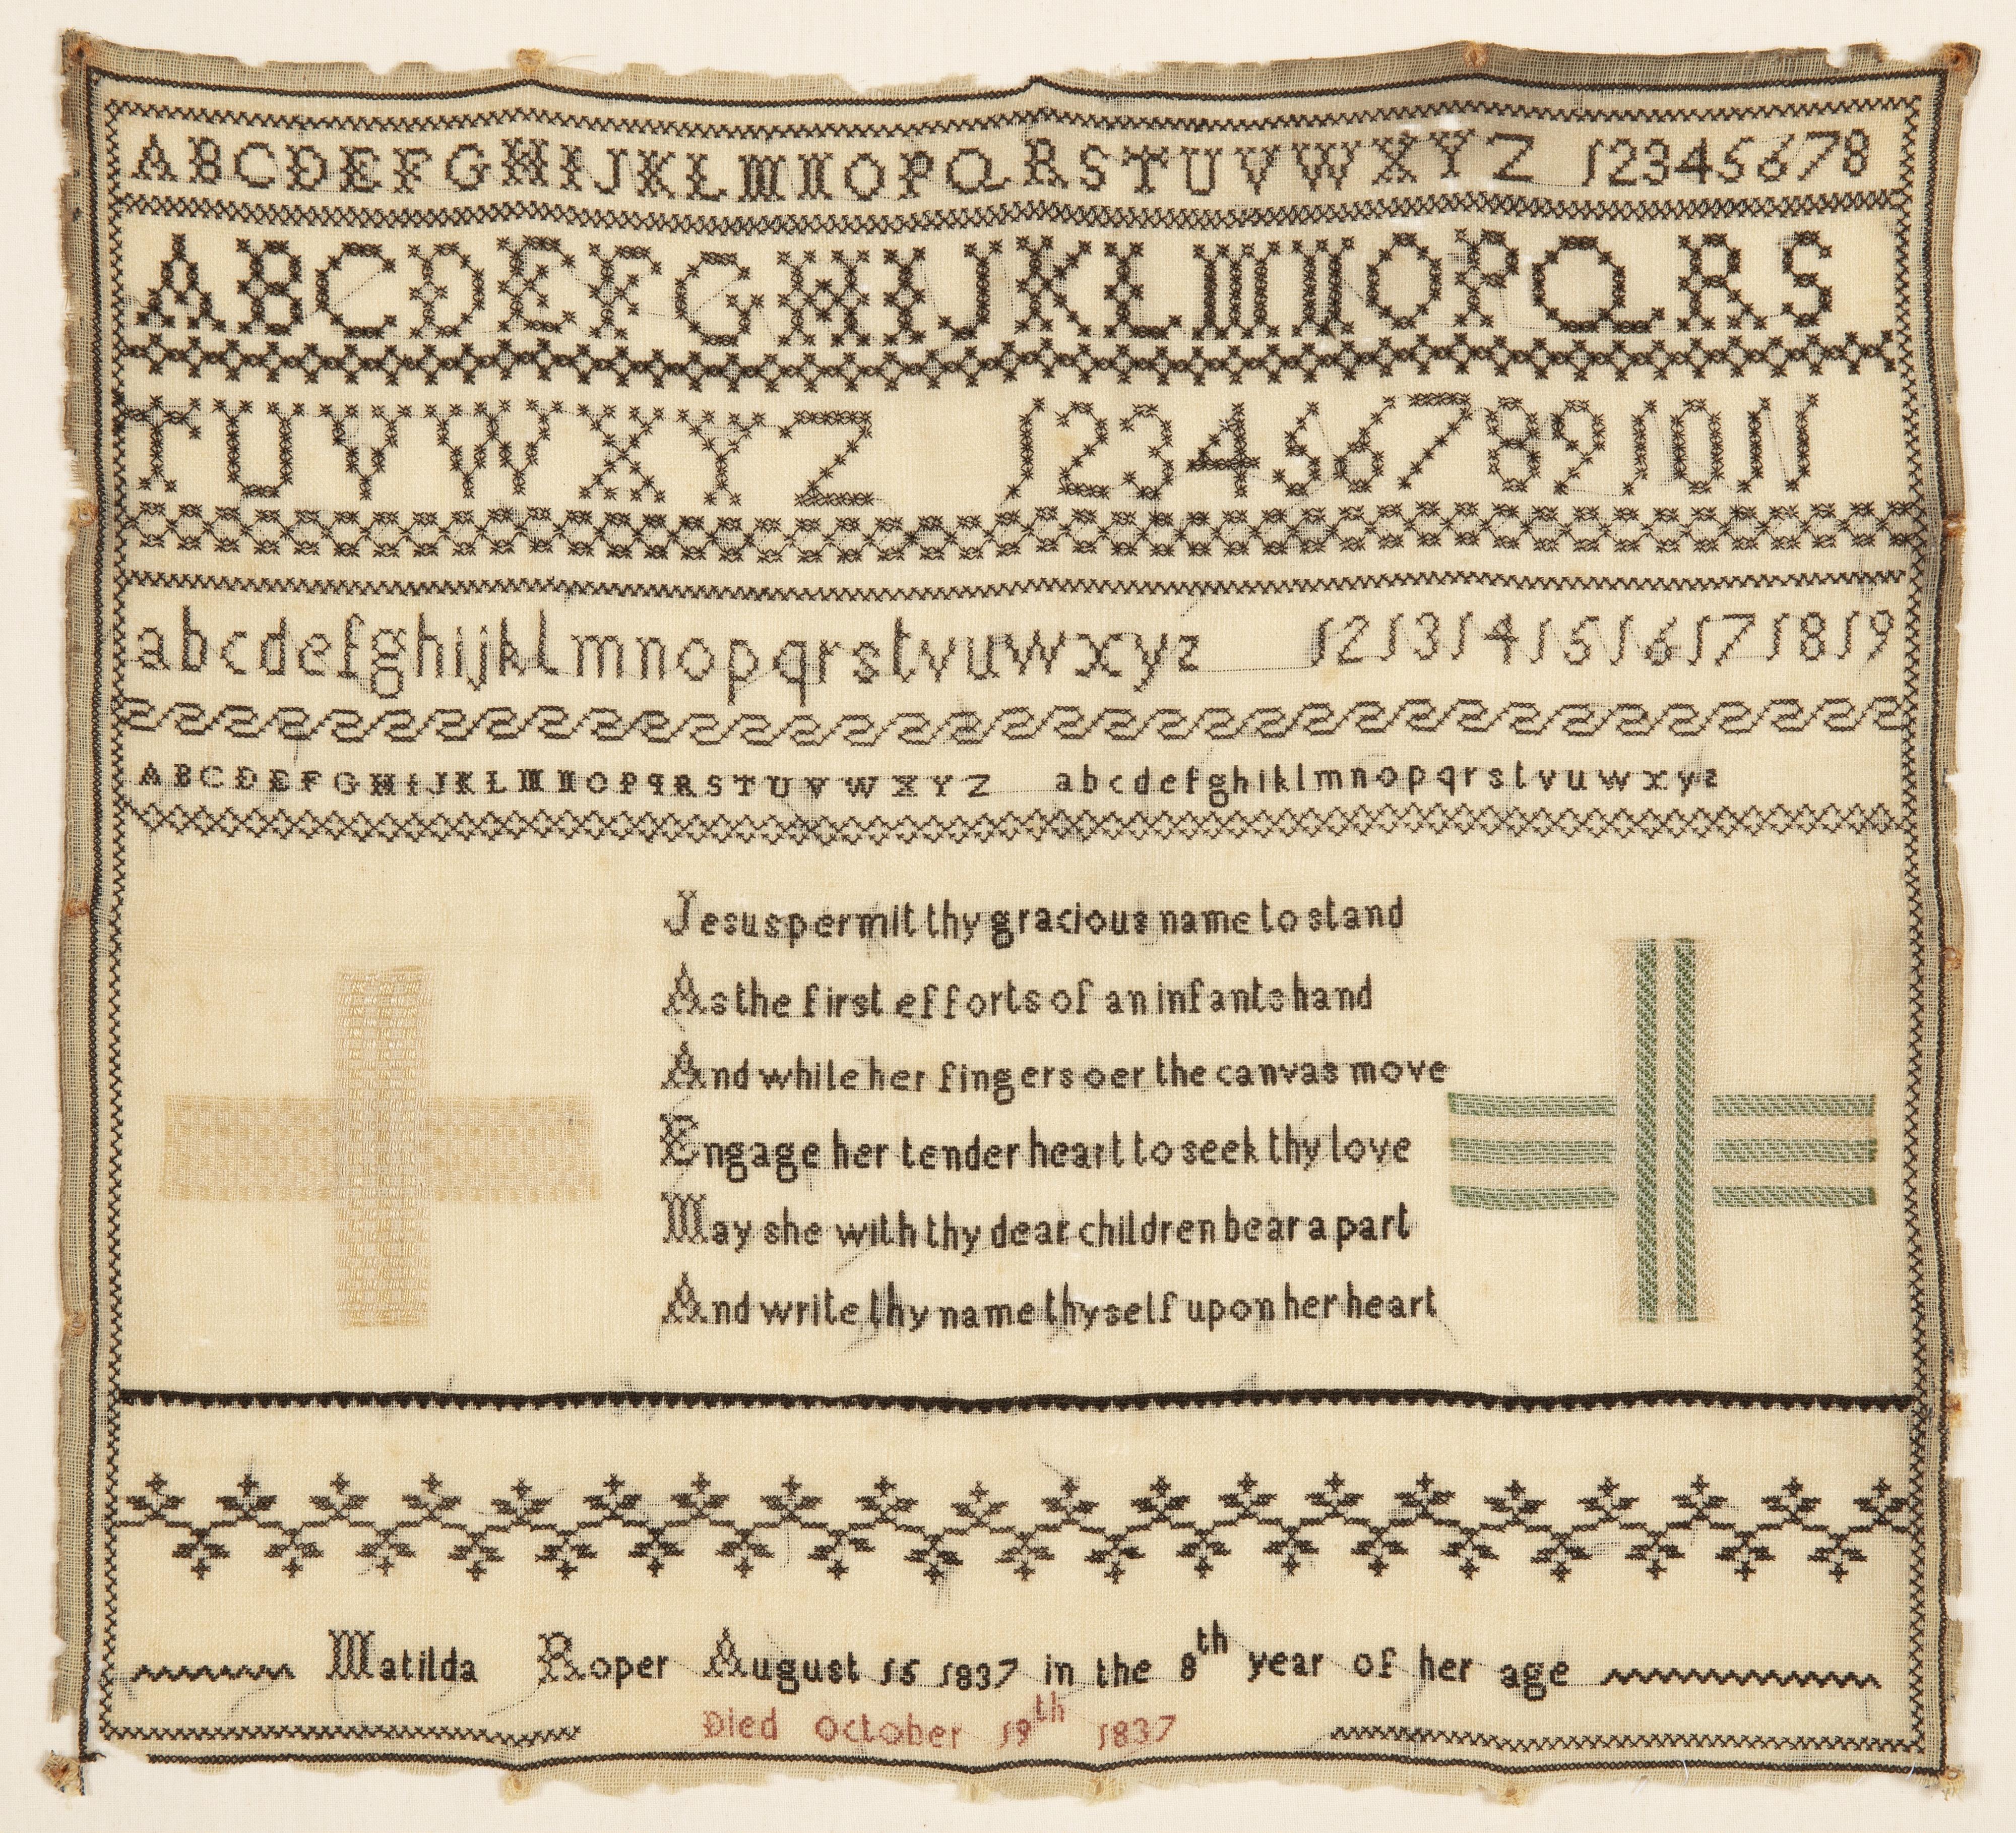 ABCDEFGHIJKLMNOPQRSTUVWXYZ 12345678
ABCDEFGHIJKLMNOPQRS
TUVWXYZ 1234567891011
abcdefghijklmnopqrstvuwxyz 1213141516171819
ABCDEFGHIJKLMNOPQRSTUVWXYZ abcdefghiklmnopqrstvuwxyz
Jesus permit thy gracious name to stand
As the first efforts of an infants hand
And while her fingers oer the canvas move
Engage her tender heart to seek thy love
May she with thy dear children bear a part
And write thy name thyself upon her heart
Matilda Roper August 16 1837 in the 8th year of her age
Died October 19th 1837